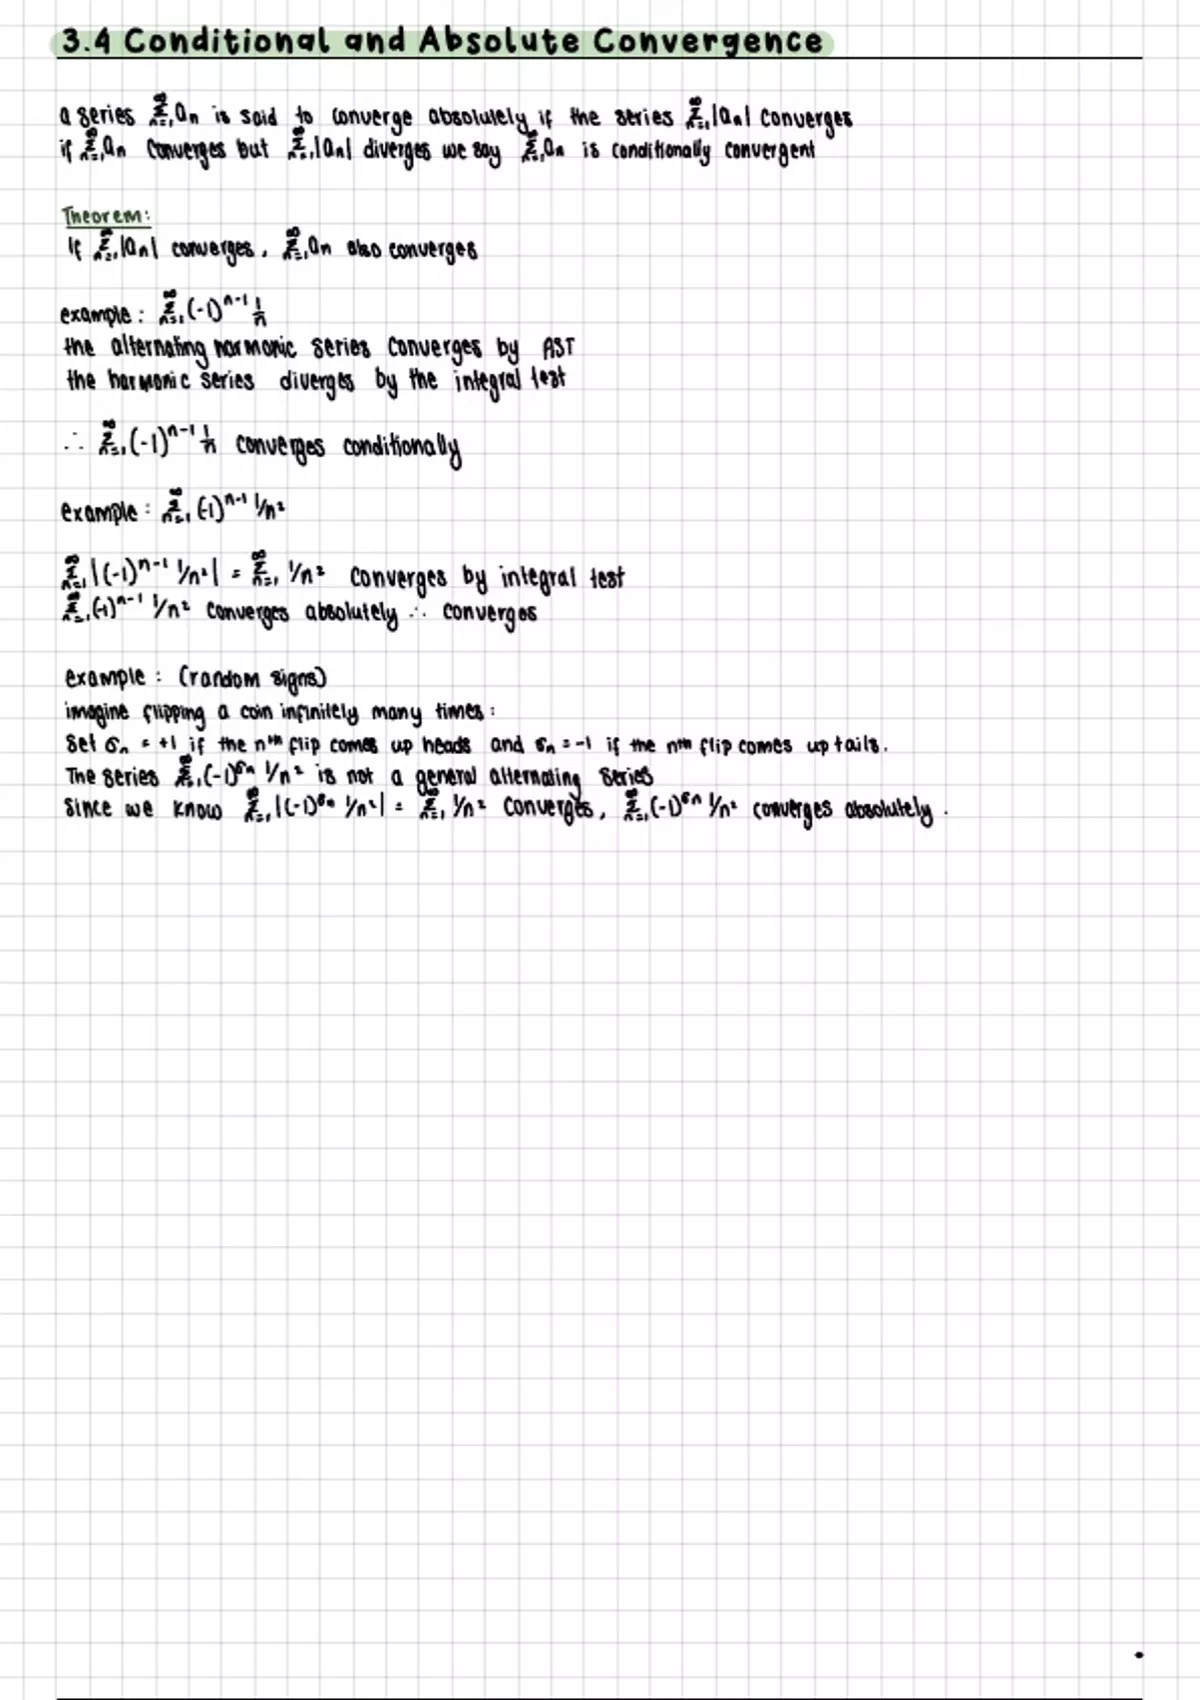 3.4 Conditional and Absolute Convergence
a series ∞Σn=1 an is said to converge absolutely if the series ∞Σn=1 |an| converges
if ∞Σn=1 an converges but ∞Σn=1 |an| diverges we say ∞Σn=1 an is conditionally convergent
Theorem:
If ∞Σn=1 |an| converges, ∞Σn=1 an also converges
example: ∞Σn=1 (-1)^n-1 1/n
the alternating harmonic series converges by AST
the harmonic series diverges by the integral test
∴ ∞Σn=1 (-1)^n-1 1/n converges conditionally
example: ∞Σn=1 (-1)^n-1 1/n²
∞Σn=1 |(-1)^n-1 1/n²| = ∞Σn=1 1/n² converges by integral test
∞Σn=1 (-1)^n-1 1/n² converges absolutely ∴ converges
example: (random signs)
imagine flipping a coin infinitely many times:
Set σn = +1 if the nth flip comes up heads and σn = -1 if the nth flip comes up tails.
The series ∞Σn=1 (-1)^σn 1/n² is not a general alternating series
Since we know ∞Σn=1 |(-1)^σn 1/n²| = ∞Σn=1 1/n² converges, ∞Σn=1 (-1)^σn 1/n² converges absolutely.